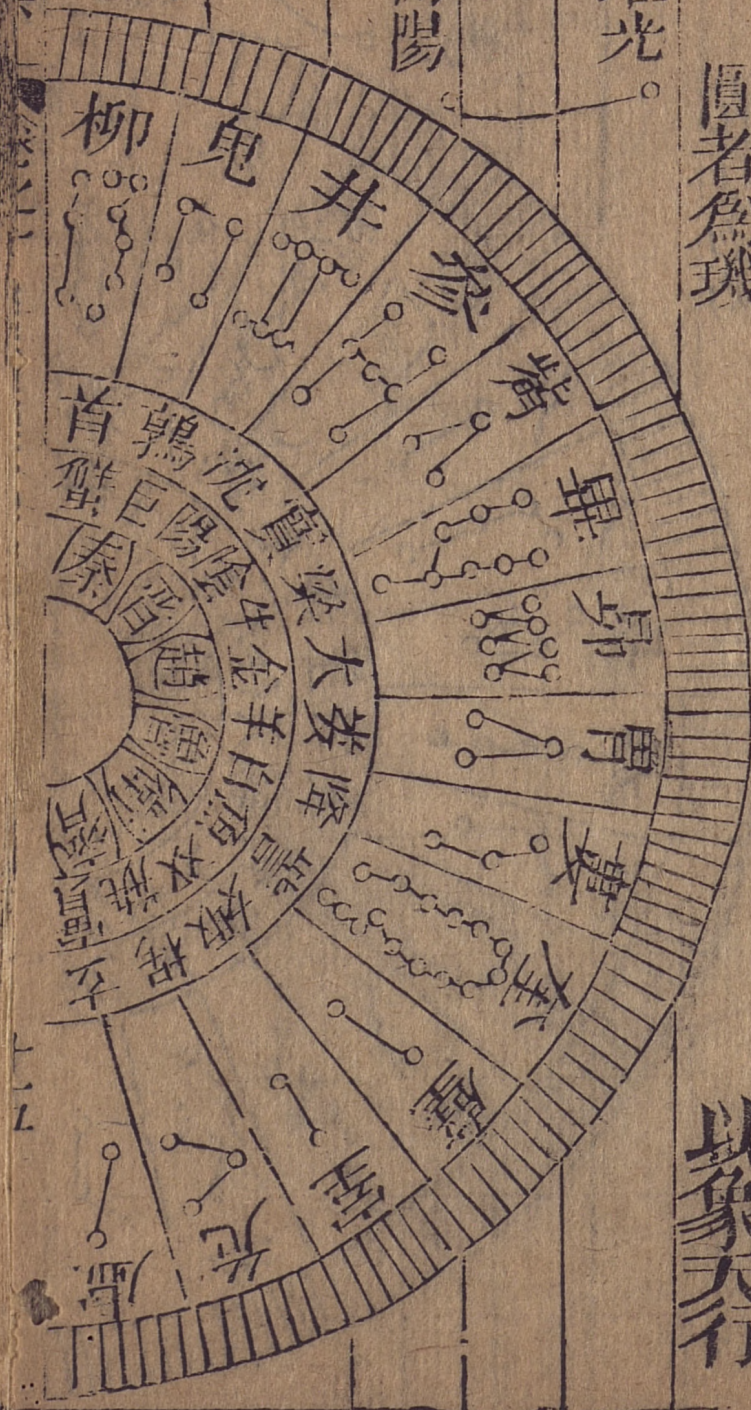 圓者爲璣
此象天行
光
陽
柳
鬼
井
參
觜
畢
昴
胃
婁
奎
壁
室
危
虛
首
鶉
沈
實
梁
大
婁
降
訾
娵
枵
玄
蟹
巨
陽
陰
牛
金
羊
白
魚
双
瓶
寶
秦
晋
趙
魯
衛
齊